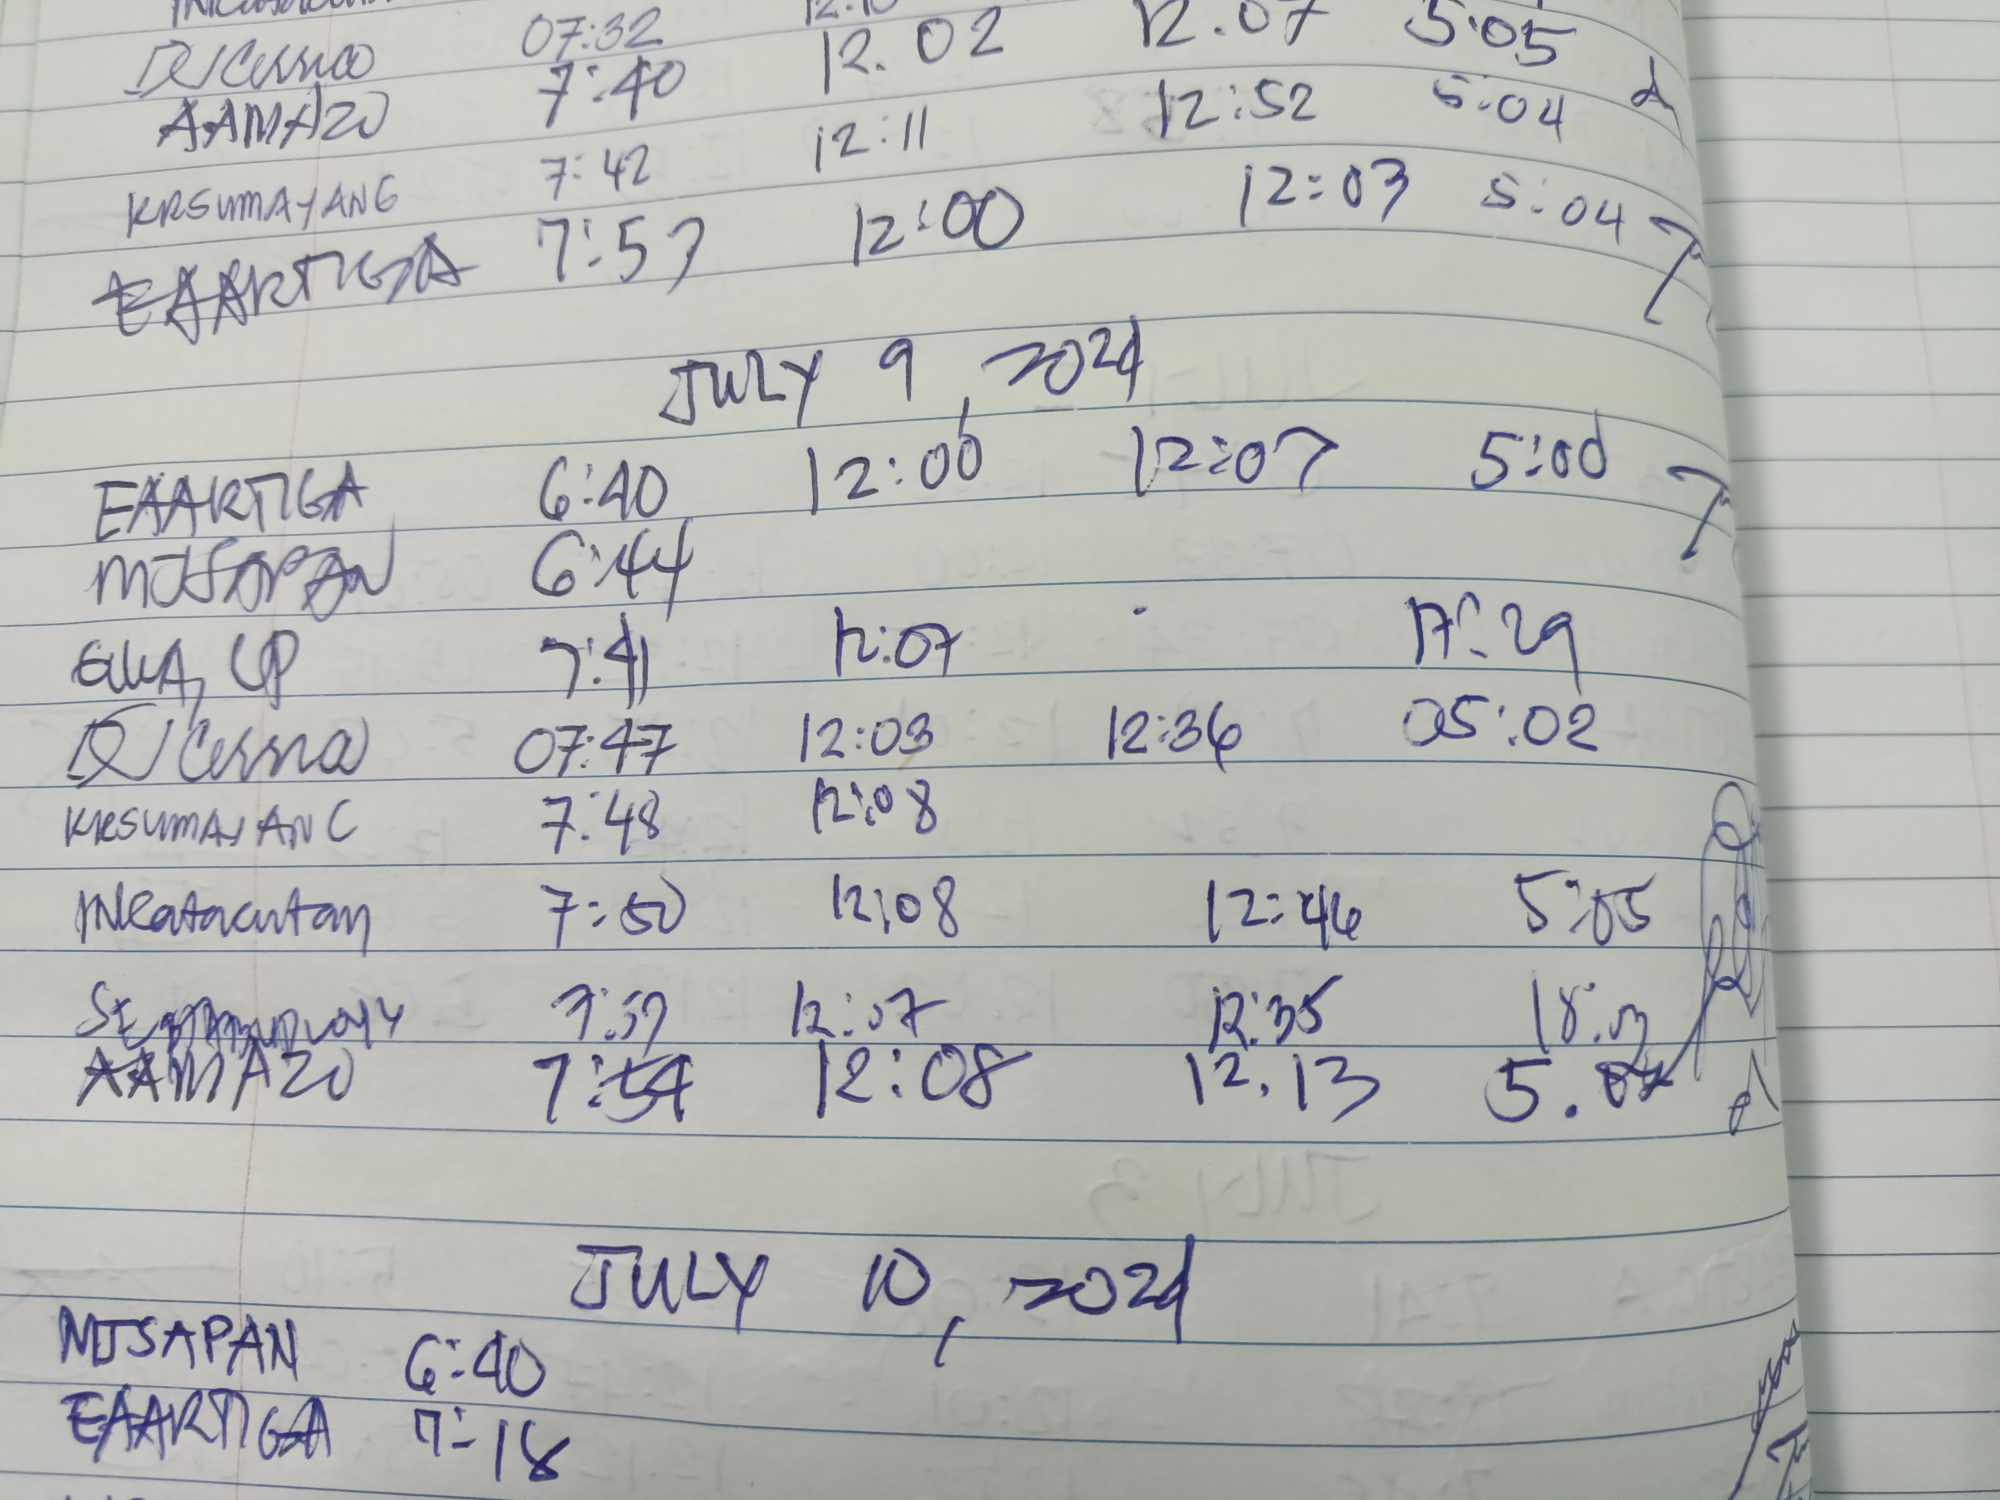 07:32 12:10
DJCerna 7:40 12.02 12.07 5:05
AAMAZO 7:42 12:11 12:52 5:04
KRSUMAYANG 7:57 12:00 12:03 5:04
EAARTIGA
JULY 9, 2024
EAARTIGA 6:40 12:00 12:07 5:00
MJSAPAN 6:44
7:41 12:07 17:29
DJCerna 07:47 12:03 12:36 05:02
KRSUMAYANG 7:48 12:08
7:50 12:08 12:46 5:05
12:07 12:35
AAMAZO 7:54 12:08 12.13
JULY 10, 2024
MJSAPAN 6:40
EAARTIGA 7:18